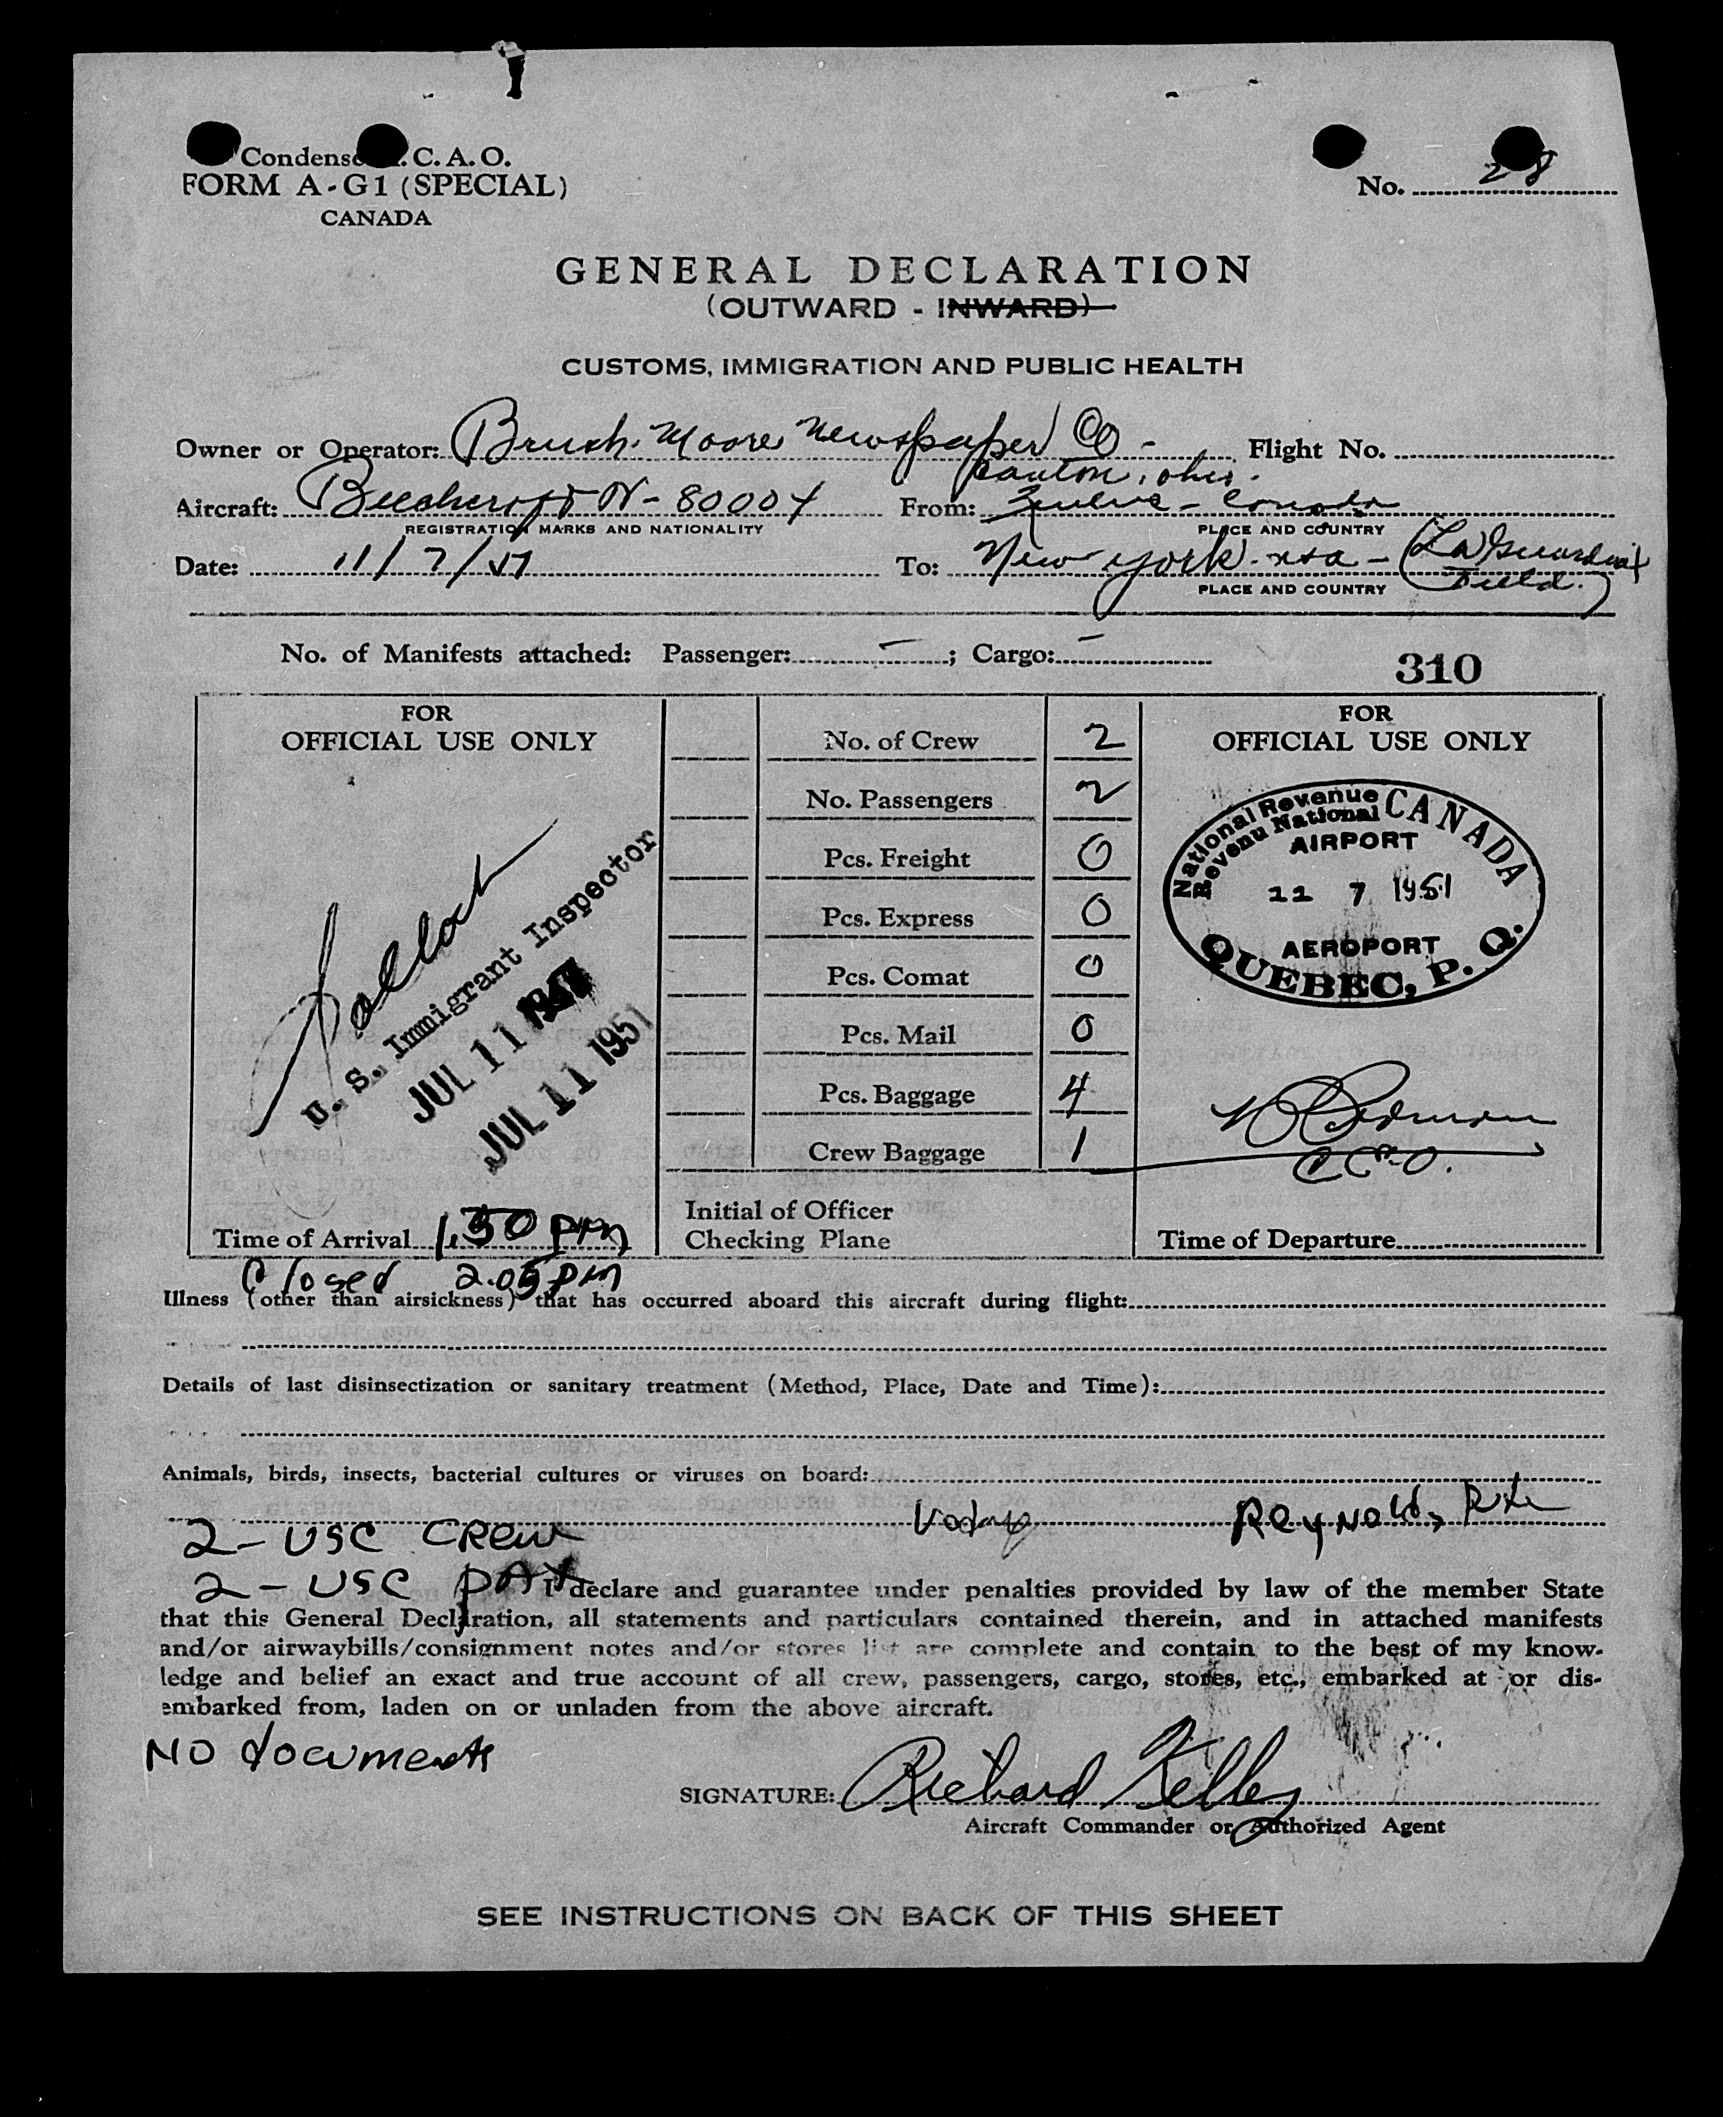 Condensed I.C.A.O.
FORM A-G1 (SPECIAL)
CANADA
No. 28
GENERAL DECLARATION
(OUTWARD - INWARD)
CUSTOMS, IMMIGRATION AND PUBLIC HEALTH
Owner or Operator: Brush-Moore Newspaper Co - Flight No.
Canton, Ohio.
Aircraft: Beechcraft N-80004 From: Canada
REGISTRATION MARKS AND NATIONALITY PLACE AND COUNTRY
Date: 11/7/51 To: New York. usa - (LaGuardia
Field.)
PLACE AND COUNTRY
No. of Manifests attached: Passenger: - ; Cargo: -
310
FOR
OFFICIAL USE ONLY
U. S. Immigrant Inspector
JUL 11 1951
JUL 11 1951
Time of Arrival 1.30 pm
Closed 2.05 pm
No. of Crew 2
No. Passengers 2
Pcs. Freight 0
Pcs. Express 0
Pcs. Comat 0
Pcs. Mail 0
Pcs. Baggage 4
Crew Baggage 1
Initial of Officer
Checking Plane
FOR
OFFICIAL USE ONLY
National Revenue CANADA
Revenu National
AIRPORT
11 7 1951
AEROPORT
QUEBEC, P. Q.
C.C.O.
Time of Departure
Illness (other than airsickness) that has occurred aboard this aircraft during flight:
Details of last disinsectization or sanitary treatment (Method, Place, Date and Time):
Animals, birds, insects, bacterial cultures or viruses on board:
Reynolds,
2 - USC CREW
2 - USC PAX
I declare and guarantee under penalties provided by law of the member State
that this General Declaration, all statements and particulars contained therein, and in attached manifests
and/or airwaybills/consignment notes and/or stores list are complete and contain to the best of my know-
ledge and belief an exact and true account of all crew, passengers, cargo, stores, etc., embarked at or dis-
embarked from, laden on or unladen from the above aircraft.
NO documents
SIGNATURE: Richard Kelley
Aircraft Commander or Authorized Agent
SEE INSTRUCTIONS ON BACK OF THIS SHEET